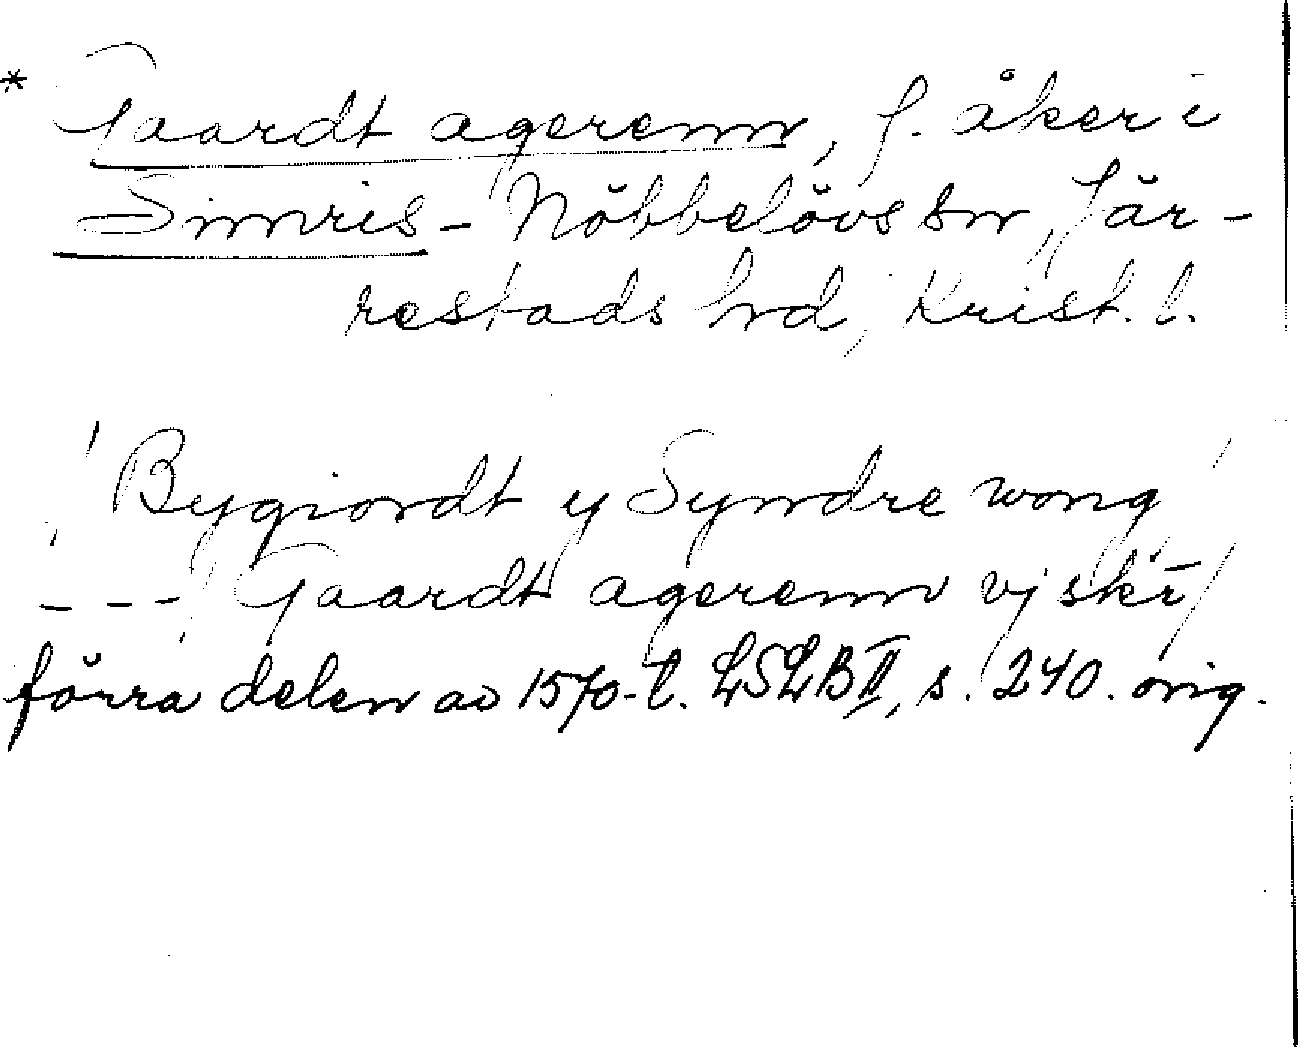 * Gaardt agerenn, f. åker i
Simris-Nöbbelövs sn, Jär-
restads hrd, Krist. l.
'Bygiordt y Syndre wong'
, - - - 'Gaardt agerenn vj skr'/
förra delen av 1570-t. LSLB II, s. 240. orig.